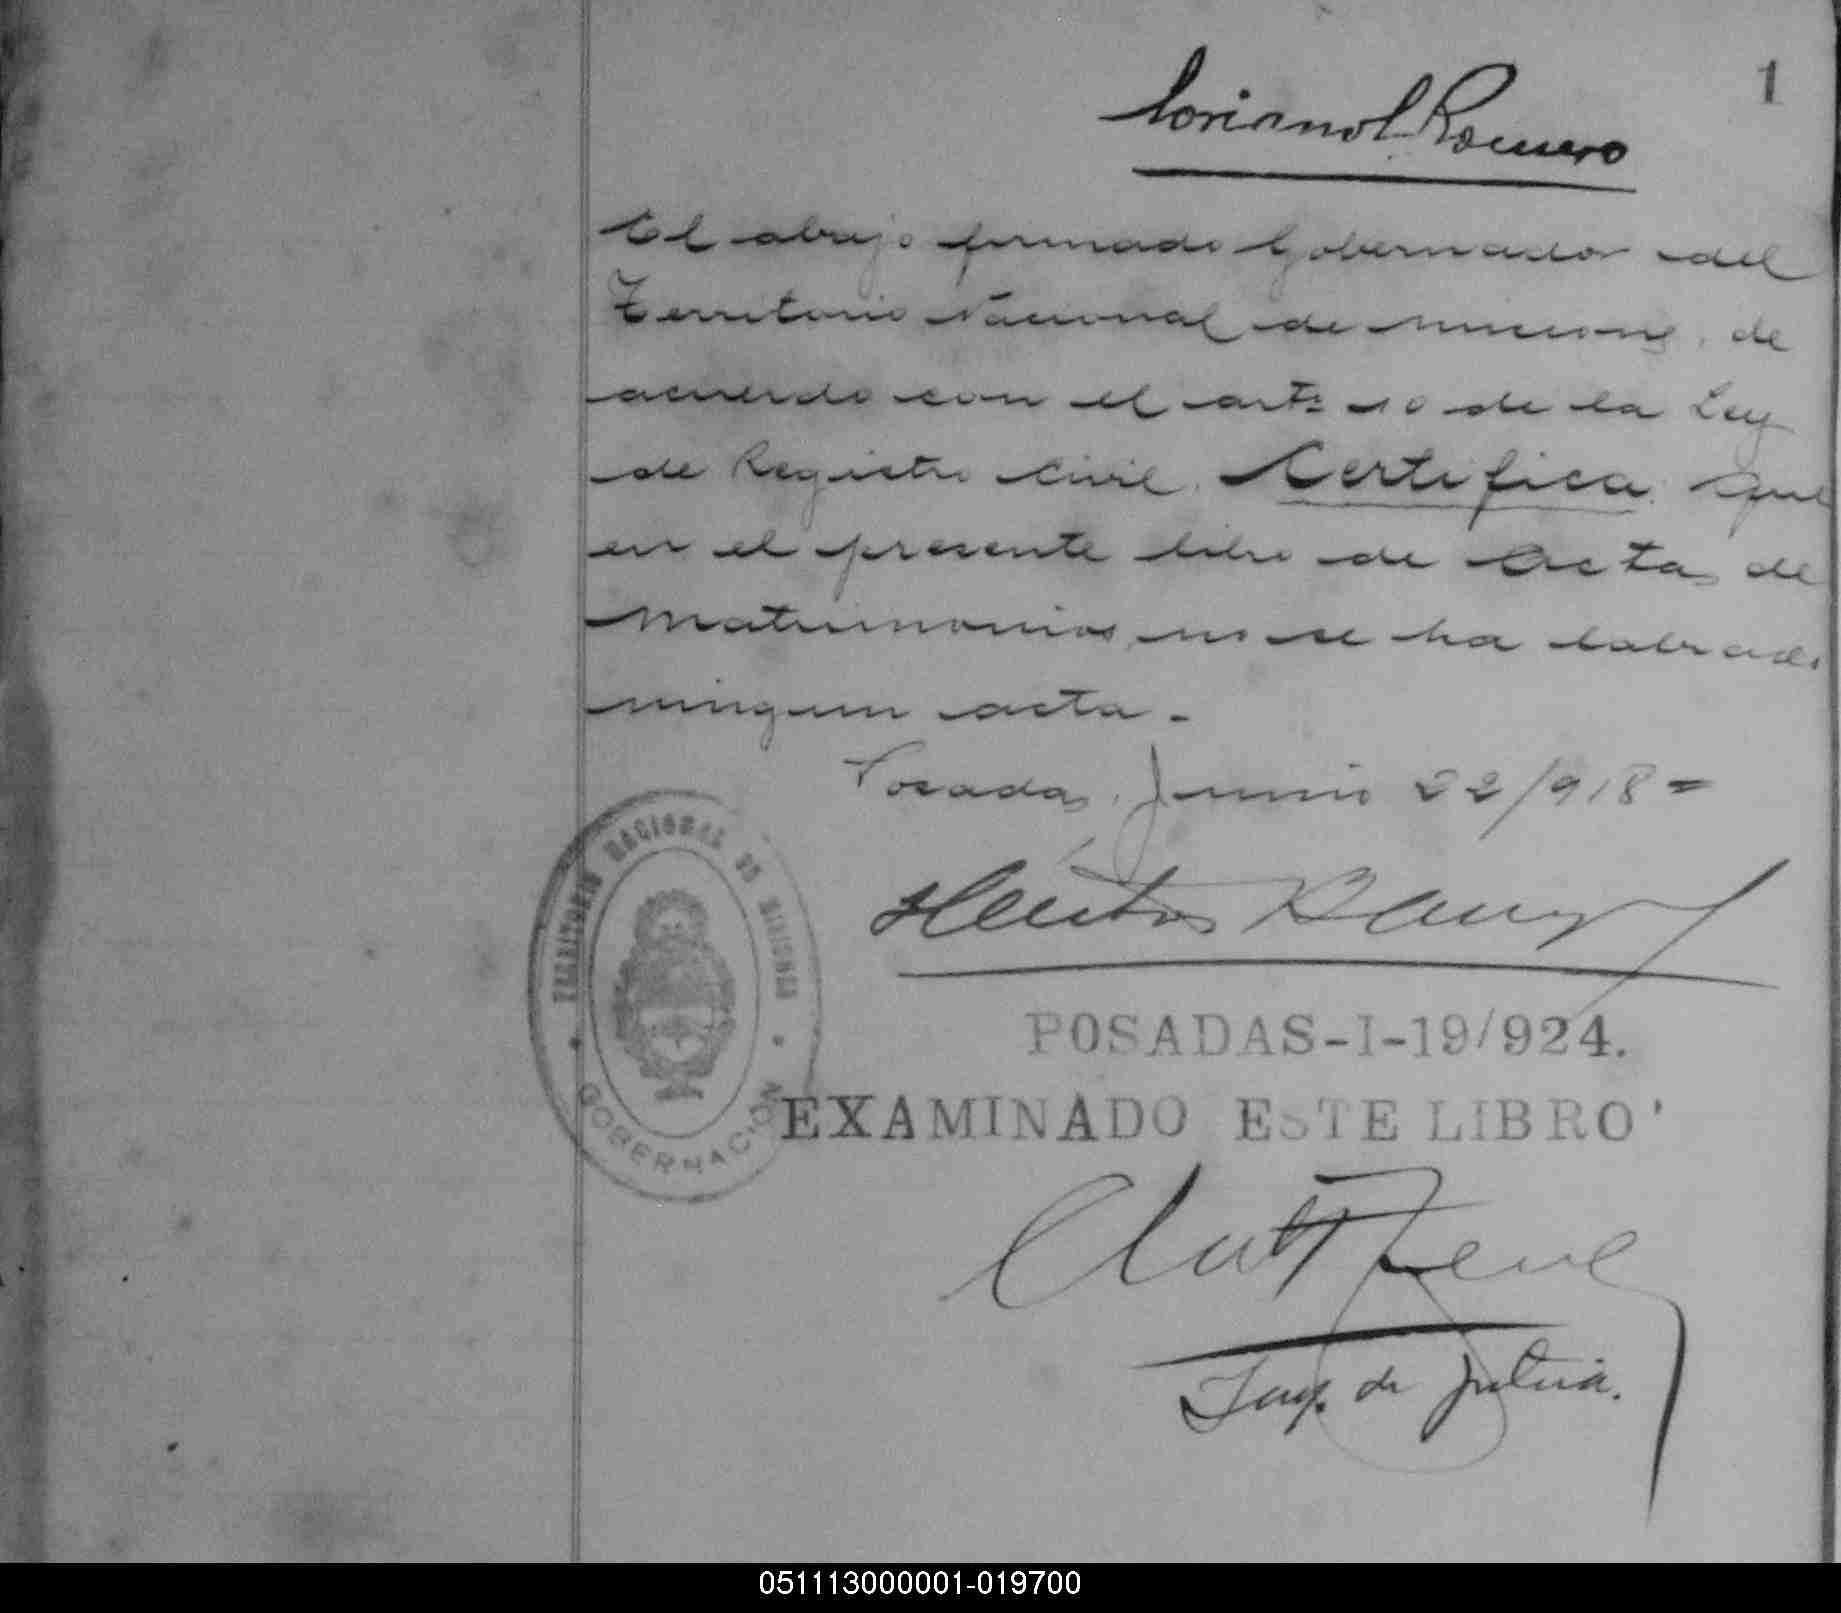 1
Romero
El abajo firmado Gobernador del
Territorio Nacional de Misiones, de
acuerdo con el artº 10 de la Ley
de Registro Civil. Certifica: Que
en el presente libro de Actas de
Matrimonios, no se ha labrado
ningun acta -
Posadas, Junio 22/918 =
TERRITORIO NACIONAL DE MISIONES
GOBERNACION
Héctor Barreyro
POSADAS-I-19/924.
EXAMINADO ESTE LIBRO
Insp. de Justicia.
051113000001-019700